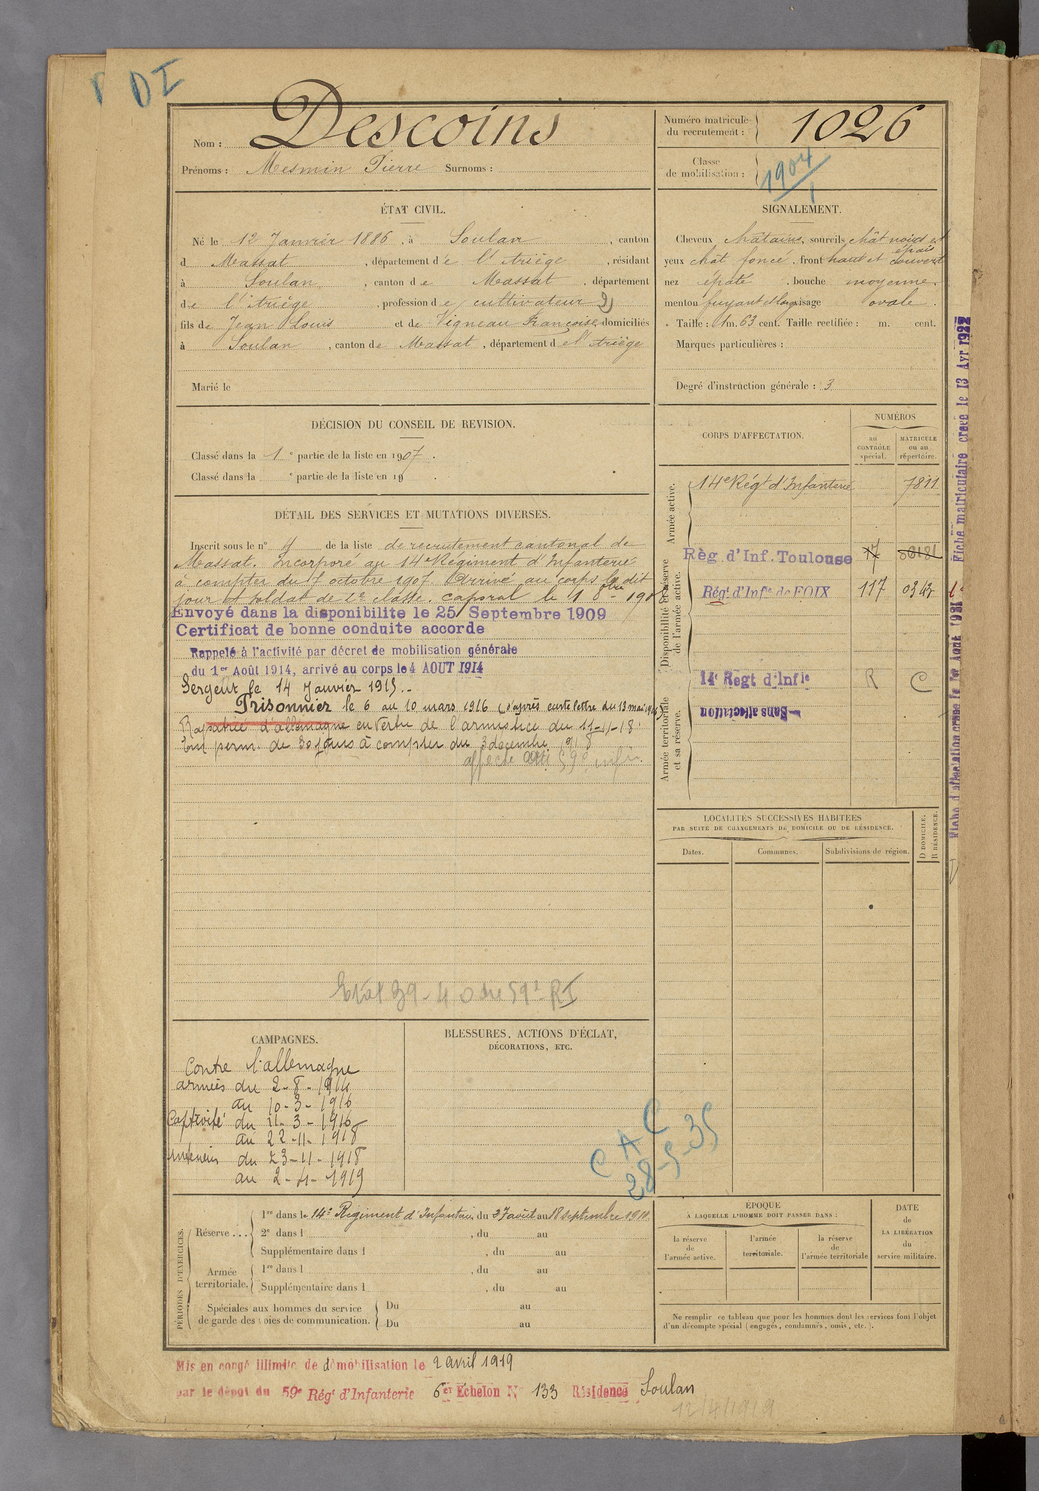 DI
Nom : Descoins
Prénoms : Mesmin Pierre Surnoms :
Numéro matricule du recrutement : 1026
Classe de mobilisation : 1904
ÉTAT CIVIL.
Né le 12 Janvier 1886, à Soulan, canton
d Massat, département de l'Ariège, résidant
à Soulan, canton de Massat, département
de l'Ariège, profession de cultivateur
fils de Jean Louis et de Vigneau Françoise domiciliés
à Soulan, canton de Massat, département de l'Ariège
Marié le
SIGNALEMENT.
Cheveux châtains, sourcils chât noirs et épais
yeux chât foncé, front haut et couvert
nez épaté, bouche moyenne
menton fuyant et large visage ovale.
Taille : 1m. 63 cent. Taille rectifiée : m. cent.
Marques particulières :
Degré d'instruction générale : 3
DÉCISION DU CONSEIL DE REVISION.
Classé dans la 1e partie de la liste en 1907.
Classé dans la e partie de la liste en 19 .
DÉTAIL DES SERVICES ET MUTATIONS DIVERSES.
Inscrit sous le n° 4 de la liste de recrutement cantonal de
Massat. Incorporé au 14e Régiment d'Infanterie
à compter du 7 octobre 1907. Arrivé au corps le dit
jour et soldat de 2e classe. Caporal le 1 8bre 1908
Envoyé dans la disponibilite le 25 Septembre 1909
Certificat de bonne conduite accorde
Rappelé à l'activité par décret de mobilisation générale
du 1er Août 1914, arrivé au corps le 4 AOUT 1914
Sergent le 14 Janvier 1915.-
Prisonnier le 6 au 10 mars 1916 (d'après carte lettre du 13 mai 1916)
Rapatrié d'allemagne en vertu de l'armistice du 11-11-18.
de 30 jours à compter du 3 décembre 1918
affecté au 59e infie.
Etat 39-40 du 59e RI
CORPS D'AFFECTATION.
NUMÉROS
AU CONTRÔLE spécial.
MATRICULE ou au répertoire.
Armée active.
14e Régt d'Infanterie 7811
Disponibilité et réserve de l'armée active.
Règ. d'Inf. Toulouse 17
Régt d'Infie de FOIX 117
14e Regt d'Infie R C
Armée territoriale et sa réserve.
Sans affectation
LOCALITÉS SUCCESSIVES HABITÉES
PAR SUITE DE CHANGEMENTS DE DOMICILE OU DE RÉSIDENCE.
Dates. Communes. Subdivisions de région. D DOMICILE. R RÉSIDENCE.
Fiche matriculaire créée le 13 Avr 1922
Fiche d'affectation créée le 1er Août 1931
CAMPAGNES.
Contre l'allemagne
armées du 2-8-1914
au 10-3-1916
Captivité du 11-3-1916
au 22-11-1918
Intérieur du 23-11-1918
au 2-4-1919
BLESSURES, ACTIONS D'ÉCLAT,
DÉCORATIONS, ETC.
CAC
28-5-35
PÉRIODES D'EXERCICES.
Réserve... 1re dans le 14e Régiment d'Infanterie, du 27 août au 18 septembre 1911
2e dans l , du au
Supplémentaire dans l , du au
Armée territoriale. 1re dans l , du au
Supplémentaire dans l , du au
Spéciales aux hommes du service de garde des voies de communication. Du au
Du au
ÉPOQUE
A LAQUELLE L'HOMME DOIT PASSER DANS :
la réserve de l'armée active. l'armée territoriale. la réserve de l'armée territoriale
DATE de LA LIBÉRATION du service militaire.
Ne remplir ce tableau que pour les hommes dont les services font l'objet
d'un décompte spécial (engagés, condamnés, omis, etc.).
Mis en congé illimité de démobilisation le 2 avril 1919
par le dépôt du 59e Régt d'Infanterie 6e Echelon N° 133 Résidence Soulan
12/4/1919